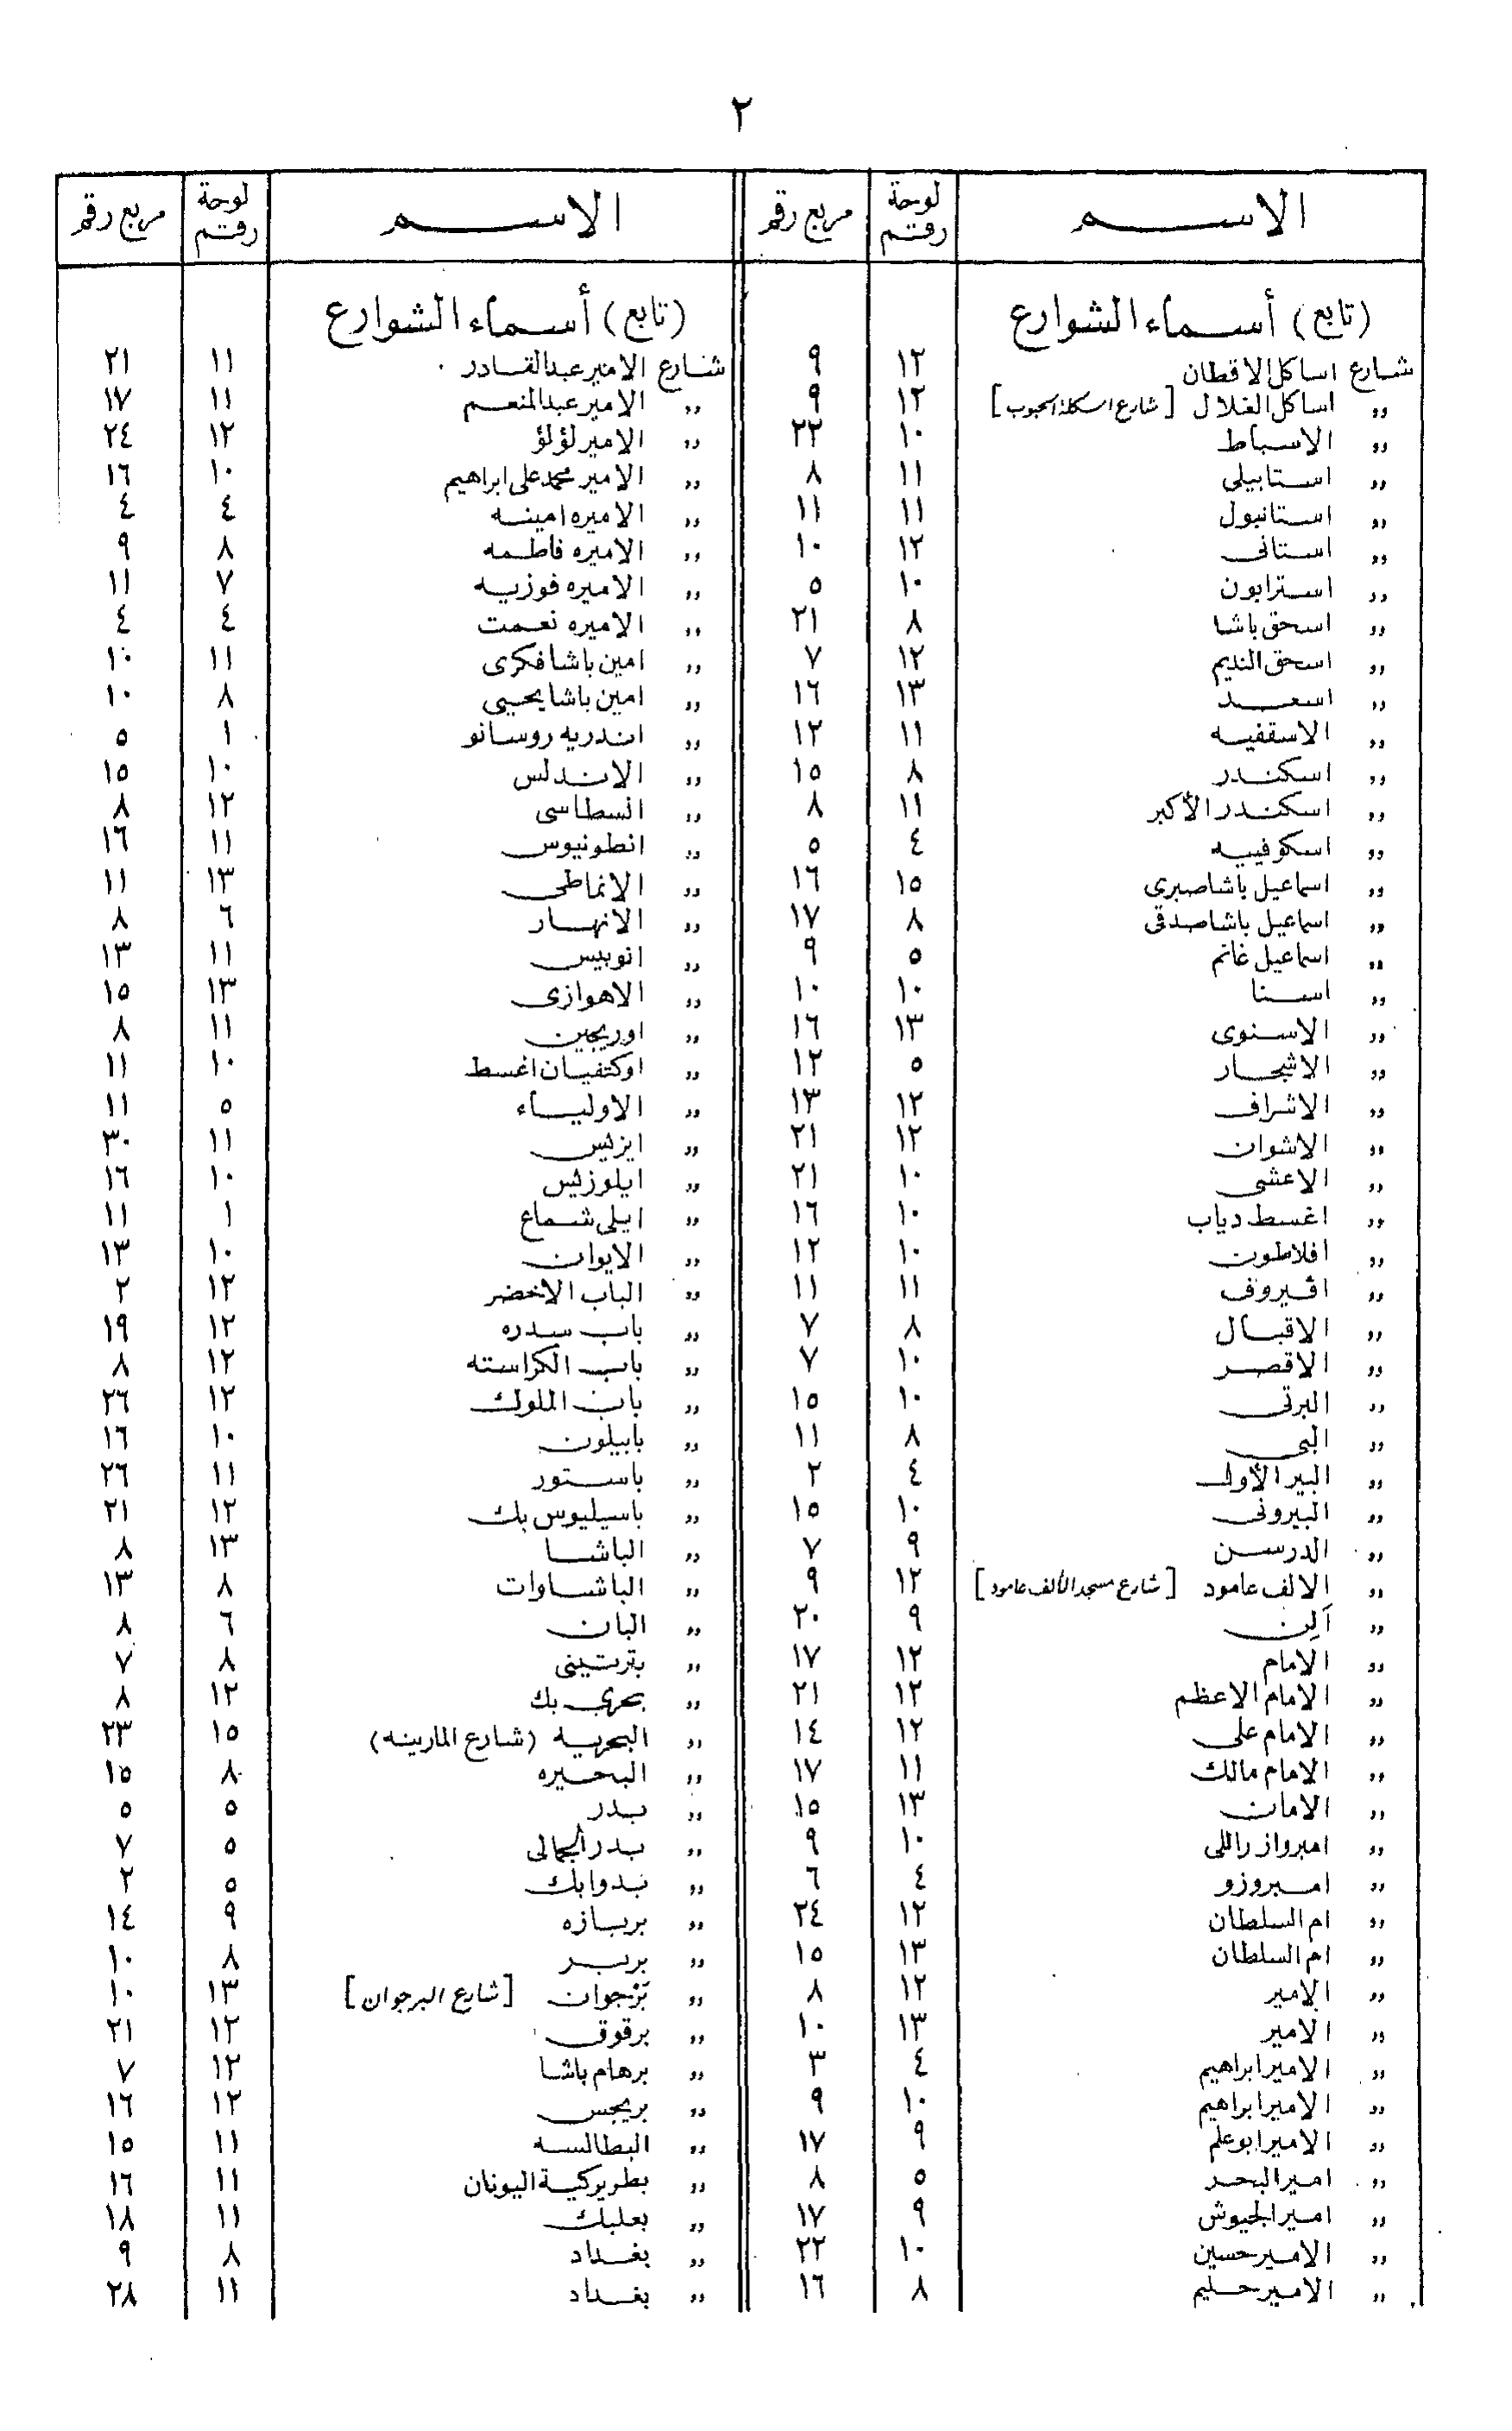 ٢
الاسم لوحة رقم مربع رقم
(تابع) أسماء الشوارع
شارع اساكل الاقطان ١٢ ٩
„ اساكل الغلال [شارع اسكلة الحبوب] ١٢ ٩
„ الاسباط ١٠ ٢٢
„ استابيلى ١١ ٨
„ استانبول ١١ ١١
„ استانى ١٢ ١٠
„ استرابون ١٠ ٥
„ اسحق باشا ٨ ٢١
„ اسحق النديم ١٢ ٧
„ اسعد ١٣ ١٦
„ الاسقفيه ١١ ١٢
„ اسكندر ٨ ١٥
„ اسكندر الأكبر ١١ ٨
„ اسكوفييه ٤ ٥
„ اسماعيل باشا صبرى ١٥ ١٦
„ اسماعيل باشا صدقى ٨ ١٧
„ اسماعيل غانم ٥ ٩
„ اسنا ١٠ ١٠
„ الاسنوى ١٣ ١٦
„ الاشجار ٥ ١٢
„ الاشراف ١٢ ١٣
„ الاشوان ١٢ ٢١
„ الاعشى ١٠ ٢١
„ اغسط دياب ١٠ ١٦
„ افلاطون ١٠ ١٢
„ اڤيروف ١١ ١١
„ الاقبال ٨ ٧
„ الاقصر ١٠ ٧
„ البرتى ١٠ ١٥
„ البى ٨ ١١
„ البير الأول ٤ ٢
„ البيرونى ١٠ ١٥
„ الدرسن ٩ ٧
„ الالف عامود [شارع مسجد الألف عامود] ١٢ ٩
„ آلن ٩ ٢٠
„ الامام ١٢ ١٧
„ الامام الاعظم ١٢ ٢١
„ الامام على ١٢ ١٤
„ الامام مالك ١١ ١٧
„ الامان ١٣ ١٥
„ امبرواز راللى ١٠ ٩
„ امبروزو ٤ ٦
„ ام السلطان ١٢ ٢٤
„ ام السلطان ١٣ ١٥
„ الامير ١٢ ٨
„ الامير ١٣ ١٠
„ الامير ابراهيم ٤ ٣
„ الامير ابراهيم ١٠ ٩
„ الامير ابوعلم ٩ ١٧
„ امير البحر ٥ ٨
„ امير الجيوش ٩ ١٧
„ الامير حسين ١٠ ٢٢
„ الامير حليم ٨ ١٦
الاسم لوحة رقم مربع رقم
(تابع) أسماء الشوارع
شارع الامير عبد القادر ١١ ٢١
„ الامير عبد المنعم ١١ ١٧
„ الامير لؤلؤ ١٢ ٢٤
„ الامير محمد على ابراهيم ١٠ ١٦
„ الاميره امينه ٤ ٤
„ الاميره فاطمه ٨ ٩
„ الاميره فوزيه ٧ ١١
„ الاميره نعمت ٤ ٤
„ امين باشا فكرى ١١ ١٠
„ امين باشا يحيى ٨ ١٠
„ اندريه روسانو ١ ٥
„ الاندلس ١٠ ١٥
„ انسطاسى ١٢ ٨
„ انطونيوس ١١ ١٦
„ الانماطى ١٣ ١١
„ الانهار ٦ ٨
„ انوبيس ١١ ١٣
„ الاهوازى ١٣ ١٥
„ اوريجين ١١ ٨
„ اوكتفيان اغسط ١٠ ١١
„ الاولياء ٥ ١١
„ ايزيس ١١ ٣٠
„ ايلوزيس ١٠ ١٦
„ ايلى شماع ١ ١١
„ الايوان ١٠ ١٣
„ الباب الاخضر ١٢ ٢
„ باب سدره ١٢ ١٩
„ باب الكراسته ١٢ ٨
„ باب الملوك ١٢ ٢٦
„ بابيلون ١٠ ١٦
„ باستور ١١ ٢٦
„ باسيليوس بك ١٢ ٢١
„ الباشا ١٣ ٨
„ الباشاوات ٨ ١٣
„ البان ٦ ٨
„ بترتينى ٨ ٧
„ بحرى بك ١٢ ٨
„ البحريه (شارع المارينه) ١٥ ٢٣
„ البحيره ٨ ١٥
„ بدر ٥ ٥
„ بدر الجمالى ٥ ٧
„ بدوا بك ٥ ٢
„ بربازه ٩ ١٤
„ بربر ٨ ١٠
„ برجوان [شارع البرجوان] ١٣ ١٠
„ برقوق ١٢ ٢١
„ برهام باشا ١٢ ٧
„ بريجس ١٢ ١٦
„ البطالسه ١١ ١٥
„ بطريركية اليونان ١١ ١٦
„ بعلبك ١١ ١٨
„ بغداد ٨ ٩
„ بغداد ١١ ٢٨